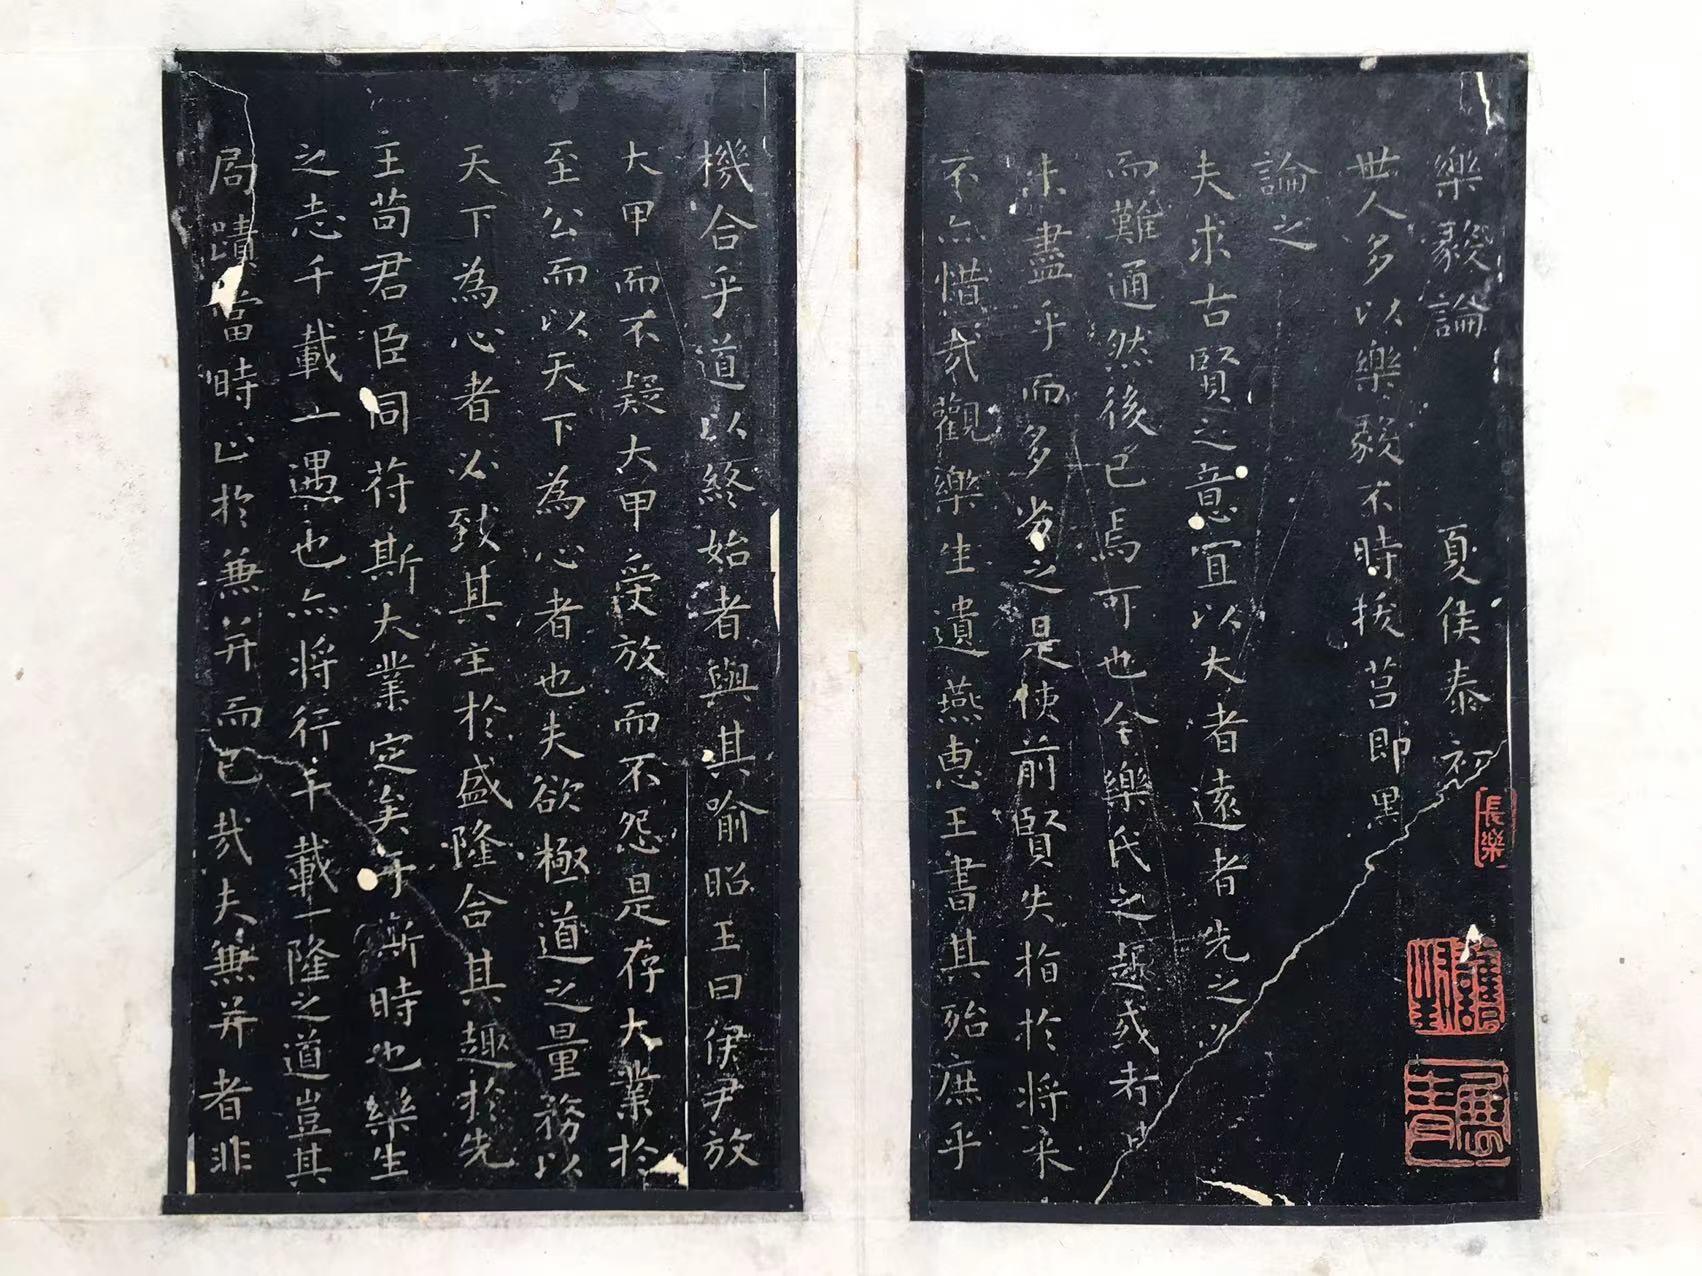 樂毅論
夏侯泰初
世人多以樂毅不時拔莒即墨
論之
夫求古賢之意宜以大者遠者先之必
而難通然後已焉可也今樂氏之趣或者其
未盡乎而多劣之是使前賢失指於將來
不亦惜哉觀樂生遺燕惠王書其殆庶乎
機合乎道以終始者與其喻昭王曰伊尹放
大甲而不疑大甲受放而不怨是存大業於
至公而以天下為心者也夫欲極道之量務以
天下為心者必致其主於盛隆合其趣於先
王苟君臣同符斯大業定矣于斯時也樂生
之志千載一遇也亦將行千載一隆之道豈其
局蹟當時止於兼并而已哉夫兼并者非
長樂